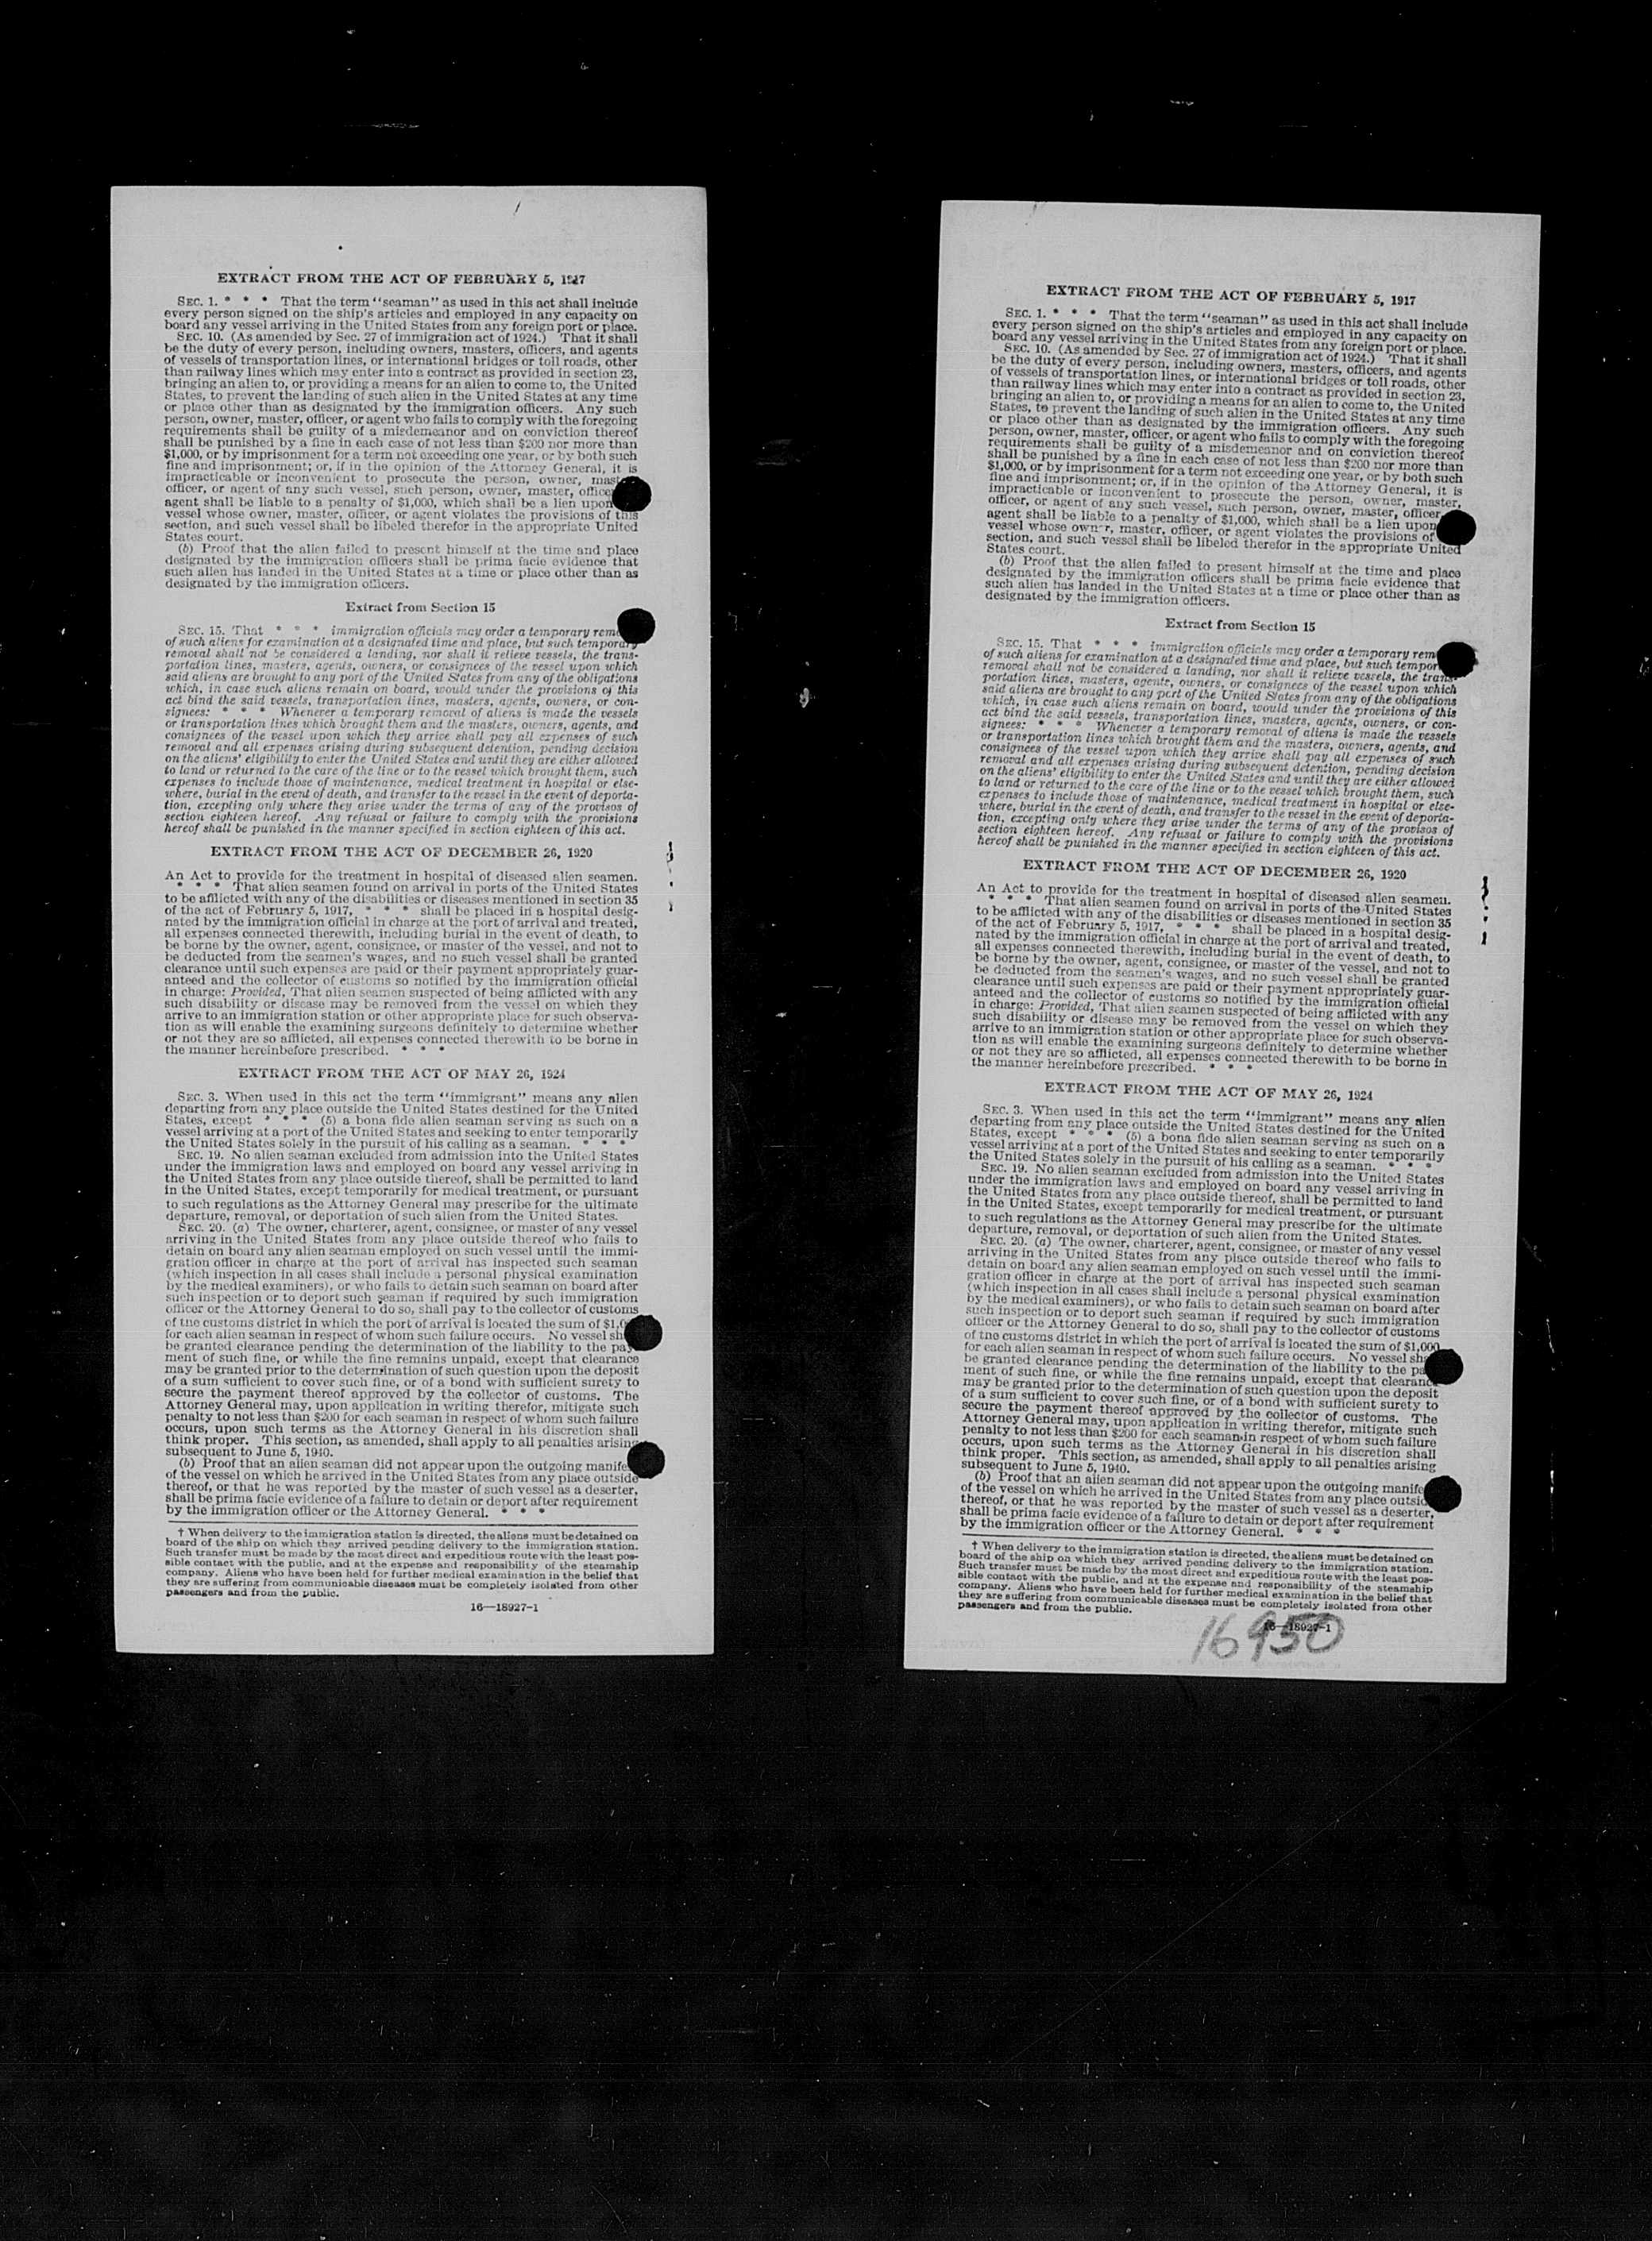 EXTRACT FROM THE ACT OF FEBRUARY 5, 1917
SEC. 1. * * * That the term "seaman" as used in this act shall include
every person signed on the ship's articles and employed in any capacity on
board any vessel arriving in the United States from any foreign port or place.
SEC. 10. (As amended by Sec. 27 of immigration act of 1924.) That it shall
be the duty of every person, including owners, masters, officers, and agents
of vessels of transportation lines, or international bridges or toll roads, other
than railway lines which may enter into a contract as provided in section 23,
bringing an alien to, or providing a means for an alien to come to, the United
States, to prevent the landing of such alien in the United States at any time
or place other than as designated by the immigration officers. Any such
person, owner, master, officer, or agent who fails to comply with the foregoing
requirements shall be guilty of a misdemeanor and on conviction thereof
shall be punished by a fine in each case of not less than $200 nor more than
$1,000, or by imprisonment for a term not exceeding one year, or by both such
fine and imprisonment; or, if in the opinion of the Attorney General, it is
impracticable or inconvenient to prosecute the person, owner, mast
officer, or agent of any such vessel, such person, owner, master, office
agent shall be liable to a penalty of $1,000, which shall be a lien upon
vessel whose owner, master, officer, or agent violates the provisions of this
section, and such vessel shall be libeled therefor in the appropriate United
States court.
(b) Proof that the alien failed to present himself at the time and place
designated by the immigration officers shall be prima facie evidence that
such alien has landed in the United States at a time or place other than as
designated by the immigration officers.
Extract from Section 15
SEC. 15. That * * * immigration officials may order a temporary remo
of such aliens for examination at a designated time and place, but such temporary
removal shall not be considered a landing, nor shall it relieve vessels, the trans-
portation lines, masters, agents, owners, or consignees of the vessel upon which
said aliens are brought to any port of the United States from any of the obligations
which, in case such aliens remain on board, would under the provisions of this
act bind the said vessels, transportation lines, masters, agents, owners, or con-
signees: * * * Whenever a temporary removal of aliens is made the vessels
or transportation lines which brought them and the masters, owners, agents, and
consignees of the vessel upon which they arrive shall pay all expenses of such
removal and all expenses arising during subsequent detention, pending decision
on the aliens' eligibility to enter the United States and until they are either allowed
to land or returned to the care of the line or to the vessel which brought them, such
expenses to include those of maintenance, medical treatment in hospital or else-
where, burial in the event of death, and transfer to the vessel in the event of deporta-
tion, excepting only where they arise under the terms of any of the provisos of
section eighteen hereof. Any refusal or failure to comply with the provisions
hereof shall be punished in the manner specified in section eighteen of this act.
EXTRACT FROM THE ACT OF DECEMBER 26, 1920
An Act to provide for the treatment in hospital of diseased alien seamen.
* * * That alien seamen found on arrival in ports of the United States
to be afflicted with any of the disabilities or diseases mentioned in section 35
of the act of February 5, 1917, * * * shall be placed in a hospital desig-
nated by the immigration official in charge at the port of arrival and treated,
all expenses connected therewith, including burial in the event of death, to
be borne by the owner, agent, consignee, or master of the vessel, and not to
be deducted from the seamen's wages, and no such vessel shall be granted
clearance until such expenses are paid or their payment appropriately guar-
anteed and the collector of customs so notified by the immigration official
in charge: Provided, That alien seamen suspected of being afflicted with any
such disability or disease may be removed from the vessel on which they
arrive to an immigration station or other appropriate place for such observa-
tion as will enable the examining surgeons definitely to determine whether
or not they are so afflicted, all expenses connected therewith to be borne in
the manner hereinbefore prescribed. * * *
EXTRACT FROM THE ACT OF MAY 26, 1924
SEC. 3. When used in this act the term "immigrant" means any alien
departing from any place outside the United States destined for the United
States, except * * * (5) a bona fide alien seaman serving as such on a
vessel arriving at a port of the United States and seeking to enter temporarily
the United States solely in the pursuit of his calling as a seaman. * * *
SEC. 19. No alien seaman excluded from admission into the United States
under the immigration laws and employed on board any vessel arriving in
the United States from any place outside thereof, shall be permitted to land
in the United States, except temporarily for medical treatment, or pursuant
to such regulations as the Attorney General may prescribe for the ultimate
departure, removal, or deportation of such alien from the United States.
SEC. 20. (a) The owner, charterer, agent, consignee, or master of any vessel
arriving in the United States from any place outside thereof who fails to
detain on board any alien seaman employed on such vessel until the immi-
gration officer in charge at the port of arrival has inspected such seaman
(which inspection in all cases shall include a personal physical examination
by the medical examiners), or who fails to detain such seaman on board after
such inspection or to deport such seaman if required by such immigration
officer or the Attorney General to do so, shall pay to the collector of customs
of the customs district in which the port of arrival is located the sum of $1,0
for each alien seaman in respect of whom such failure occurs. No vessel sha
be granted clearance pending the determination of the liability to the pay
ment of such fine, or while the fine remains unpaid, except that clearance
may be granted prior to the determination of such question upon the deposit
of a sum sufficient to cover such fine, or of a bond with sufficient surety to
secure the payment thereof approved by the collector of customs. The
Attorney General may, upon application in writing therefor, mitigate such
penalty to not less than $200 for each seaman in respect of whom such failure
occurs, upon such terms as the Attorney General in his discretion shall
think proper. This section, as amended, shall apply to all penalties arising
subsequent to June 5, 1940.
(b) Proof that an alien seaman did not appear upon the outgoing manife
of the vessel on which he arrived in the United States from any place outside
thereof, or that he was reported by the master of such vessel as a deserter,
shall be prima facie evidence of a failure to detain or deport after requirement
by the immigration officer or the Attorney General. * * *
† When delivery to the immigration station is directed, the aliens must be detained on
board of the ship on which they arrived pending delivery to the immigration station.
Such transfer must be made by the most direct and expeditious route with the least pos-
sible contact with the public, and at the expense and responsibility of the steamship
company. Aliens who have been held for further medical examination in the belief that
they are suffering from communicable diseases must be completely isolated from other
passengers and from the public.
16—18927-1
EXTRACT FROM THE ACT OF FEBRUARY 5, 1917
SEC. 1. * * * That the term "seaman" as used in this act shall include
every person signed on the ship's articles and employed in any capacity on
board any vessel arriving in the United States from any foreign port or place.
SEC. 10. (As amended by Sec. 27 of immigration act of 1924.) That it shall
be the duty of every person, including owners, masters, officers, and agents
of vessels of transportation lines, or international bridges or toll roads, other
than railway lines which may enter into a contract as provided in section 23,
bringing an alien to, or providing a means for an alien to come to, the United
States, to prevent the landing of such alien in the United States at any time
or place other than as designated by the immigration officers. Any such
person, owner, master, officer, or agent who fails to comply with the foregoing
requirements shall be guilty of a misdemeanor and on conviction thereof
shall be punished by a fine in each case of not less than $200 nor more than
$1,000, or by imprisonment for a term not exceeding one year, or by both such
fine and imprisonment; or, if in the opinion of the Attorney General, it is
impracticable or inconvenient to prosecute the person, owner, master,
officer, or agent of any such vessel, such person, owner, master, officer,
agent shall be liable to a penalty of $1,000, which shall be a lien upon
vessel whose owner, master, officer, or agent violates the provisions of
section, and such vessel shall be libeled therefor in the appropriate United
States court.
(b) Proof that the alien failed to present himself at the time and place
designated by the immigration officers shall be prima facie evidence that
such alien has landed in the United States at a time or place other than as
designated by the immigration officers.
Extract from Section 15
SEC. 15. That * * * immigration officials may order a temporary rem
of such aliens for examination at a designated time and place, but such tempor
removal shall not be considered a landing, nor shall it relieve vessels, the trans-
portation lines, masters, agents, owners, or consignees of the vessel upon which
said aliens are brought to any port of the United States from any of the obligations
which, in case such aliens remain on board, would under the provisions of this
act bind the said vessels, transportation lines, masters, agents, owners, or con-
signees: * * * Whenever a temporary removal of aliens is made the vessels
or transportation lines which brought them and the masters, owners, agents, and
consignees of the vessel upon which they arrive shall pay all expenses of such
removal and all expenses arising during subsequent detention, pending decision
on the aliens' eligibility to enter the United States and until they are either allowed
to land or returned to the care of the line or to the vessel which brought them, such
expenses to include those of maintenance, medical treatment in hospital or else-
where, burial in the event of death, and transfer to the vessel in the event of deporta-
tion, excepting only where they arise under the terms of any of the provisos of
section eighteen hereof. Any refusal or failure to comply with the provisions
hereof shall be punished in the manner specified in section eighteen of this act.
EXTRACT FROM THE ACT OF DECEMBER 26, 1920
An Act to provide for the treatment in hospital of diseased alien seamen.
* * * That alien seamen found on arrival in ports of the United States
to be afflicted with any of the disabilities or diseases mentioned in section 35
of the act of February 5, 1917, * * * shall be placed in a hospital desig-
nated by the immigration official in charge at the port of arrival and treated,
all expenses connected therewith, including burial in the event of death, to
be borne by the owner, agent, consignee, or master of the vessel, and not to
be deducted from the seamen's wages, and no such vessel shall be granted
clearance until such expenses are paid or their payment appropriately guar-
anteed and the collector of customs so notified by the immigration official
in charge: Provided, That alien seamen suspected of being afflicted with any
such disability or disease may be removed from the vessel on which they
arrive to an immigration station or other appropriate place for such observa-
tion as will enable the examining surgeons definitely to determine whether
or not they are so afflicted, all expenses connected therewith to be borne in
the manner hereinbefore prescribed. * * *
EXTRACT FROM THE ACT OF MAY 26, 1924
SEC. 3. When used in this act the term "immigrant" means any alien
departing from any place outside the United States destined for the United
States, except * * * (5) a bona fide alien seaman serving as such on a
vessel arriving at a port of the United States and seeking to enter temporarily
the United States solely in the pursuit of his calling as a seaman. * * *
SEC. 19. No alien seaman excluded from admission into the United States
under the immigration laws and employed on board any vessel arriving in
the United States from any place outside thereof, shall be permitted to land
in the United States, except temporarily for medical treatment, or pursuant
to such regulations as the Attorney General may prescribe for the ultimate
departure, removal, or deportation of such alien from the United States.
SEC. 20. (a) The owner, charterer, agent, consignee, or master of any vessel
arriving in the United States from any place outside thereof who fails to
detain on board any alien seaman employed on such vessel until the immi-
gration officer in charge at the port of arrival has inspected such seaman
(which inspection in all cases shall include a personal physical examination
by the medical examiners), or who fails to detain such seaman on board after
such inspection or to deport such seaman if required by such immigration
officer or the Attorney General to do so, shall pay to the collector of customs
of the customs district in which the port of arrival is located the sum of $1,000
for each alien seaman in respect of whom such failure occurs. No vessel sha
be granted clearance pending the determination of the liability to the pa
ment of such fine, or while the fine remains unpaid, except that clearance
may be granted prior to the determination of such question upon the deposit
of a sum sufficient to cover such fine, or of a bond with sufficient surety to
secure the payment thereof approved by the collector of customs. The
Attorney General may, upon application in writing therefor, mitigate such
penalty to not less than $200 for each seaman in respect of whom such failure
occurs, upon such terms as the Attorney General in his discretion shall
think proper. This section, as amended, shall apply to all penalties arising
subsequent to June 5, 1940.
(b) Proof that an alien seaman did not appear upon the outgoing manife
of the vessel on which he arrived in the United States from any place outsid
thereof, or that he was reported by the master of such vessel as a deserter,
shall be prima facie evidence of a failure to detain or deport after requirement
by the immigration officer or the Attorney General. * * *
† When delivery to the immigration station is directed, the aliens must be detained on
board of the ship on which they arrived pending delivery to the immigration station.
Such transfer must be made by the most direct and expeditious route with the least pos-
sible contact with the public, and at the expense and responsibility of the steamship
company. Aliens who have been held for further medical examination in the belief that
they are suffering from communicable diseases must be completely isolated from other
passengers and from the public.
16—18927-1
16950